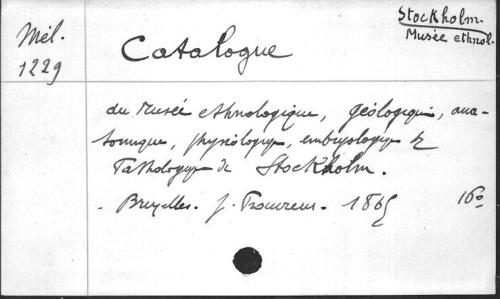 Stockholm.
Musée ethnol.
Mél.
1229
Catalogue
du Musée ethnologique, géologique, ana-
tomique, physiologique, embryologique &
Pathologique de Stockholm.
- Bruxelles. J. 1865 16º